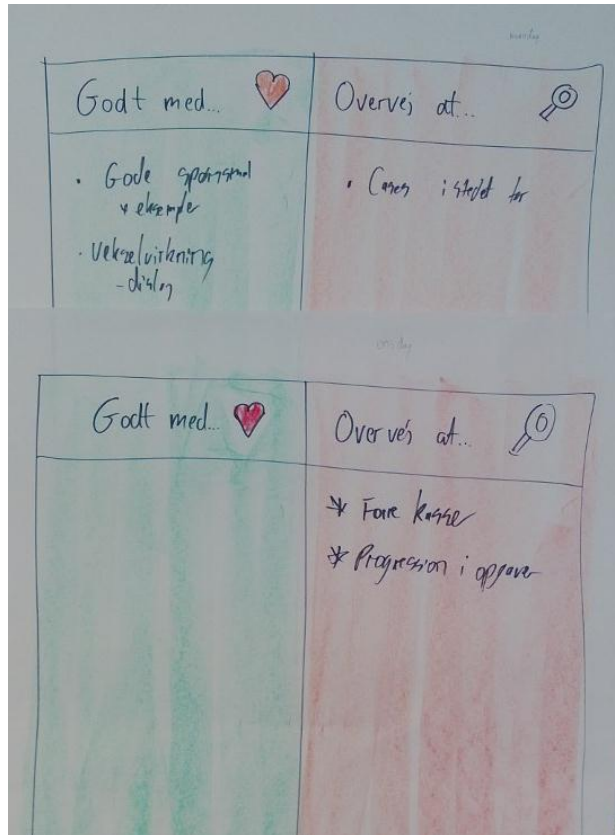 mandag
Godt med...
Overvej at...
• Gode spørgsmål
* eksempler
• Vekselvirkning
- dialog
• Cases i stedet for
onsdag
Godt med...
Overvej at...
* Farekasse
* Progression i opgaver